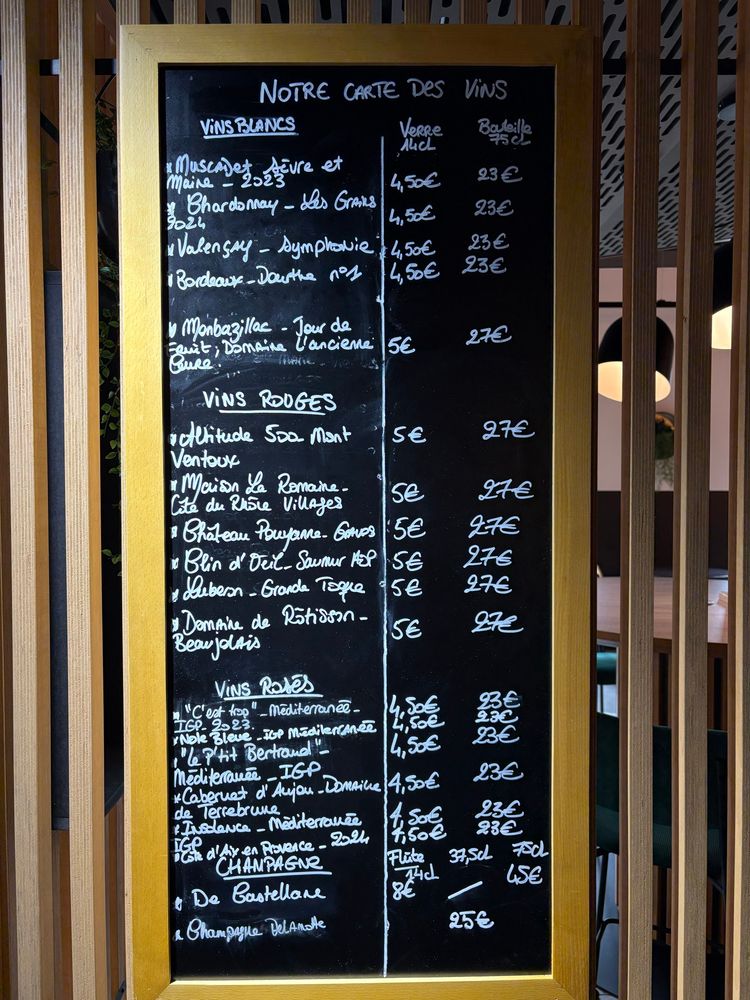 NOTRE CARTE DES VINS
VINS BLANCS Verre 14cl Bouteille 75cl
* Muscadet Sèvre et
Maine - 2023 4,50€ 23€
* Chardonnay - Les Grains
2024 4,50€ 23€
* Valençay - Symphonie 4,50€ 23€
* Bordeaux - Dourthe n°1 4,50€ 23€
* Monbazillac - Jour de
Fruit, Domaine l'ancienne
Cure. 5€ 27€
VINS ROUGES
* Altitude 500 Mont
Ventoux 5€ 27€
* Maison La Romaine -
Côte du Rhône Villages 5€ 27€
* Château Pouyanne - Graves 5€ 27€
* Clin d'Oeil - Saumur AOP 5€ 27€
* Luberon - Grande Toque 5€ 27€
* Domaine de Rôtisson -
Beaujolais 5€ 27€
VINS ROSÉS
* "C'est trop" - Méditerranée -
IGP 2023 4,50€ 23€
* Note Bleue - IGP Méditerranée 4,50€ 23€
* "Le P'tit Bertraud" -
Méditerranée - IGP 4,50€ 23€
* Cabernet d'Anjou - Domaine
de Terrebrune 4,50€ 23€
* Insolence - Méditerranée
IGP 4,50€ 23€
* Côte d'Aix en Provence - 2024 4,50€ 23€
CHAMPAGNE Flûte 14cl 37,5cl 75cl
* De Castellane 8€ / 45€
* Champagne Delamotte 25€